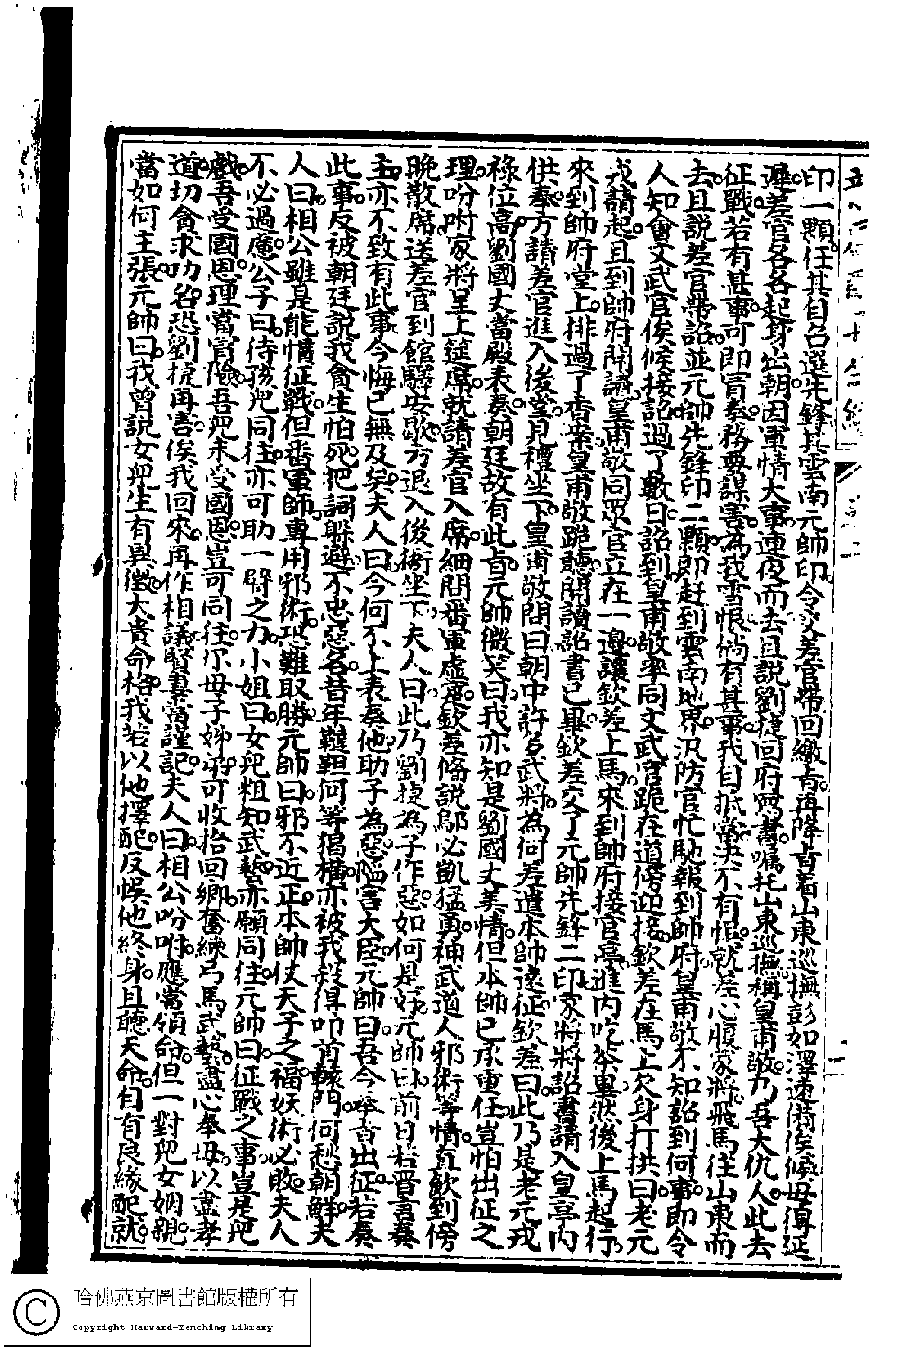 印一顆任其自召選先鋒其雲南元帥印令差官帶回繳旨再降旨着山東巡撫彭如澤速儹侯毋得延
遲差官各各起身出朝因軍情大事連夜而去且説劉捷回府寫書囑托山東巡撫稱皇甫敬乃吾大仇人此去
征戰若有甚事可即冐奏務要謀害為我雪恨倘有甚事我自抵當决不有悞就差心腹家將飛馬往山東而
去且説差官帶詔並元帥先鋒印二顆即赶到雲南地界汎防官忙馳報到帥府皇甫敬不知詔到何事即令
人知會文武官俟候接詔過了數日詔到皇甫敬率同文武官跪在道傍迎接欽差在馬上欠身打拱曰老元
戎請起且到帥府開讀皇甫敬同眾官立在一邊讓欽差上馬來到帥府接官亭進内吃茶畢然後上馬起行
來到帥府堂上排過了香案皇甫敬跪聽開讀詔書已畢欽差交了元帥先鋒二印家將將詔書請入皇亭内
供奉方請差官進入後堂見禮坐下皇甫敬問曰朝中許多武將為何差遣本帥遠征欽差曰此乃是老元戎
祿位高劉國丈當殿表奏朝廷故有此旨元帥微笑曰我亦知是劉國丈美情但本帥已承重任豈怕出征之
理吩咐家將呈上筵席就請差官入席細問番軍虛實欽差備説鄔必凱猛勇神武道人邪術等情直飲到傍
晚散席送差官到館驛安歇方退入後衙坐下夫人曰此乃劉捷為子作惡如何是好元帥曰前日若晋言奏
主亦不致有此事今悔已無及矣夫人曰今何不上表奏他助子為惡隘害大臣元帥曰吾今奉旨出征若奏
此事反被朝廷説我貪生怕死把詞躱避不忠惡名昔年韃靼何等猖獗亦被我殺得叩首轅門何愁朝鮮夫
人曰相公雖是能慣征戰但番軍師專用邪術恐難取勝元帥曰邪不近正本帥仗天子之福妖術必敗夫人
不必過慮公子曰待孩兒同往亦可助一臂之力小姐曰女兒粗知武藝亦願同往元帥曰征戰之事豈是兒
戲吾受國恩理當冐險吾兒未受國恩豈可同往尔母子姊弟可收拾回鄉奮練弓馬武藝盡心奉母以盡孝
道切貪求功名恐劉捷再害俟我回來再作相議賢妻當謹記夫人曰相公吩咐應當領命但一對兒女姻親
當如何主張元帥曰我曾説女兒生有異徵大貴命格我若以他擇配反悞他終身且聽天命自有良緣配就
哈佛燕京圖書館版權所有
Copyright Harvard-Yenching Library